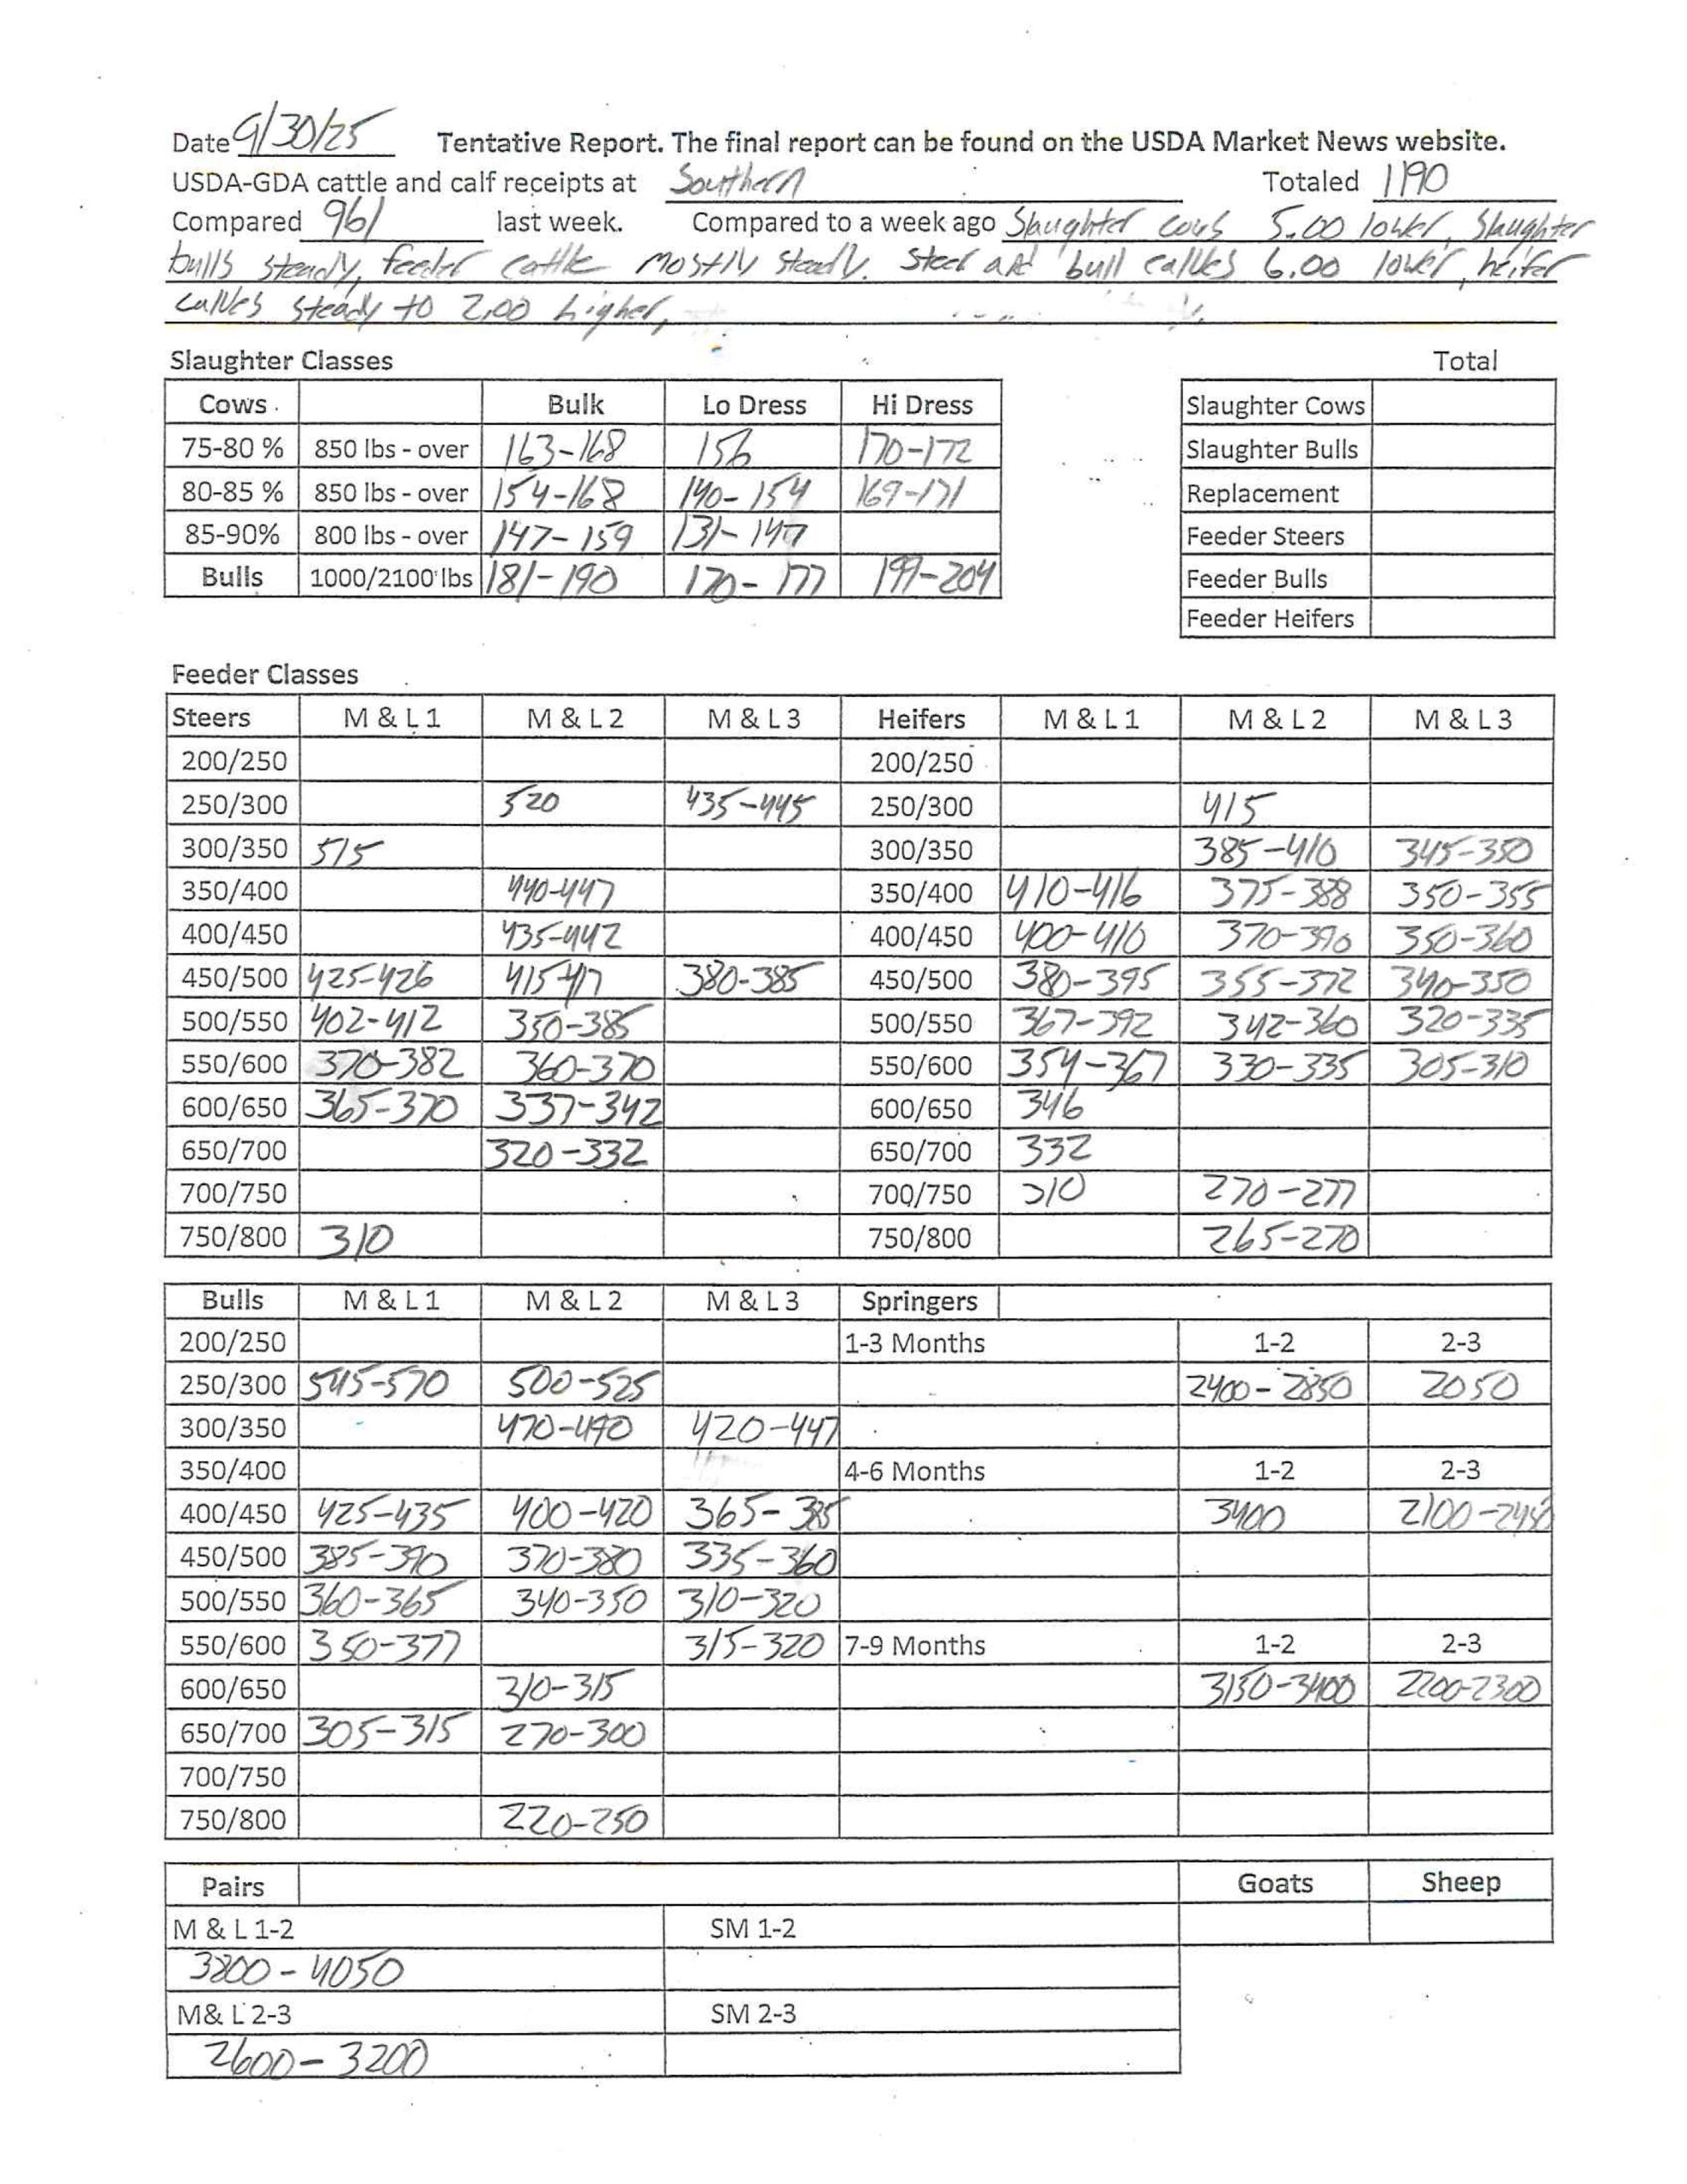 Date 9/30/25 Tentative Report. The final report can be found on the USDA Market News website.
USDA-GDA cattle and calf receipts at Southern Totaled 1190
Compared 961 last week. Compared to a week ago Slaughter cows 5.00 lower, Slaughter
bulls steady, feeder cattle mostly steady. Steer and bull calves 6.00 lower, heifer
calves steady to 2.00 higher,
Slaughter Classes Total
Cows Bulk Lo Dress Hi Dress Slaughter Cows
75-80 % 850 lbs - over 163-168 156 170-172 Slaughter Bulls
80-85 % 850 lbs - over 154-168 140-154 169-171 Replacement
85-90% 800 lbs - over 147-159 131-147 Feeder Steers
Bulls 1000/2100 lbs 181-190 170-177 199-204 Feeder Bulls
Feeder Heifers
Feeder Classes
Steers M & L 1 M & L 2 M & L 3 Heifers M & L 1 M & L 2 M & L 3
200/250 200/250
250/300 520 435-445 250/300 415
300/350 515 300/350 385-410 345-350
350/400 440-447 350/400 410-416 375-388 350-355
400/450 435-442 400/450 400-410 370-390 350-360
450/500 425-426 415-417 380-385 450/500 380-395 355-372 340-350
500/550 402-412 350-385 500/550 367-392 342-360 320-335
550/600 370-382 360-370 550/600 354-367 330-335 305-310
600/650 365-370 337-342 600/650 346
650/700 320-332 650/700 332
700/750 700/750 310 270-277
750/800 310 750/800 265-270
Bulls M & L 1 M & L 2 M & L 3 Springers
200/250 1-3 Months 1-2 2-3
250/300 545-570 500-525 2400-2850 2050
300/350 470-490 420-447
350/400 4-6 Months 1-2 2-3
400/450 425-435 400-420 365-385 3400 2100-2450
450/500 385-390 370-380 335-360
500/550 360-365 340-350 310-320
550/600 350-377 315-320 7-9 Months 1-2 2-3
600/650 310-315 3150-3400 2200-2300
650/700 305-315 270-300
700/750
750/800 220-250
Pairs Goats Sheep
M & L 1-2 SM 1-2
3800-4050
M& L 2-3 SM 2-3
2600-3200